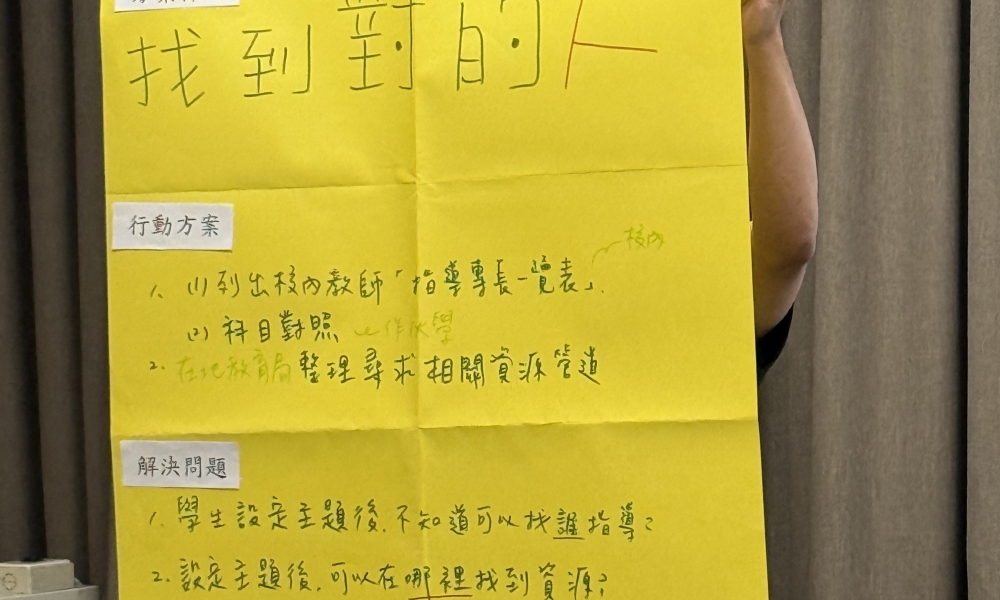 找到對的人
行動方案
校內
1. (1) 列出校內教師「指導專長一覽表」.
(2) 科目對照
2. 在地教育局整理尋求相關資源管道
解決問題
1. 學生設定主題後,不知道可以找誰指導?
2. 設定主題後,可以在哪裡找到資源?